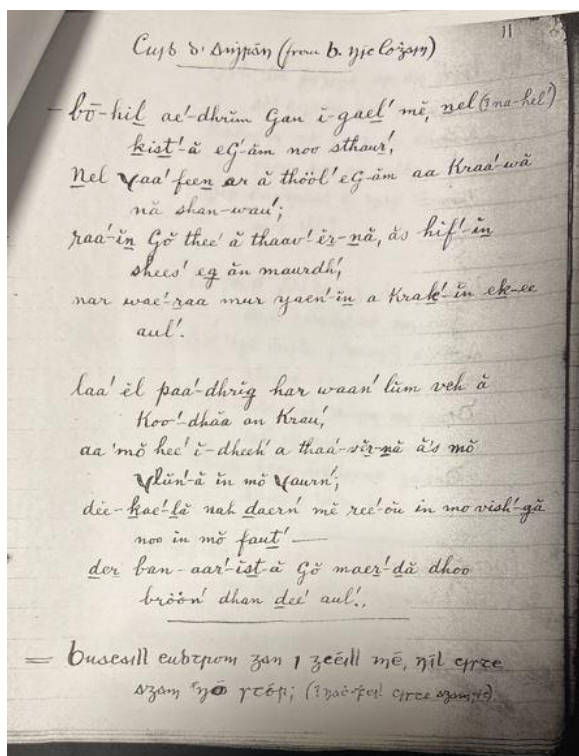 11
Cuid d'aṁrán (from b. nic Loġain)
bō-hil̲ ae'-dhrĭm Gan ĭ-gael̲' mĕ, n̲el (? na-hel')
k̲ist'-ă eG'-ăm noo sthaur̲',
n̲el Yaa' feen̲ ar ă thööl' eG-ăm aa Kraa'-wă
nă shan-wau';
raa'-ĭn̲ Gŏ thee' ă thaav'-ĕr̲-nă, ăs hif'-ĭn̲
shees' eg̲ ăn maurdh',
nar wae'-r̲aa mur yaen'-ĭn̲ a Krak̲'-ĭn ek̲-ee
aul'.
laa' ĕl paa'-dhrĭg har waan' lŭm veh ă
Koo'-dhăa an Krau',
aa 'mŏ hee' ĭ-dheeh' a thaa-vĭr̲-n̲ă ă's mŏ
Ylŭn'-ă ĭn mŏ Yaurn';
dee-k̲ae'-l̲ă nah daern' mĕ ree'-ŏŭ in mo vish'-gă
noo in mŏ faut' —
d̲er̲ ban-aar'-ĭst̲-ă Gŏ maer̲'-d̲ă dhoo
bröön' dhan d̲ee' aul'.
= buacaill eadtrom gan i gcéill mé, níl ciste
agam 'ná stór;